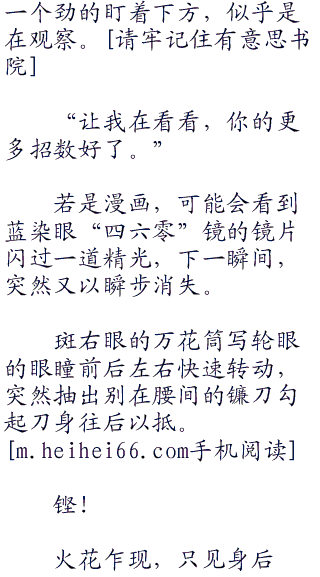 一个劲的盯着下方，似乎是
在观察。[请牢记住有意思书
院]
“让我在看看，你的更
多招数好了。”
若是漫画，可能会看到
蓝染眼“四六零”镜的镜片
闪过一道精光，下一瞬间，
突然又以瞬步消失。
斑右眼的万花筒写轮眼
的眼瞳前后左右快速转动，
突然抽出别在腰间的镰刀勾
起刀身往后以抵。
[m.heihei66.com手机阅读]
铿！
火花乍现，只见身后